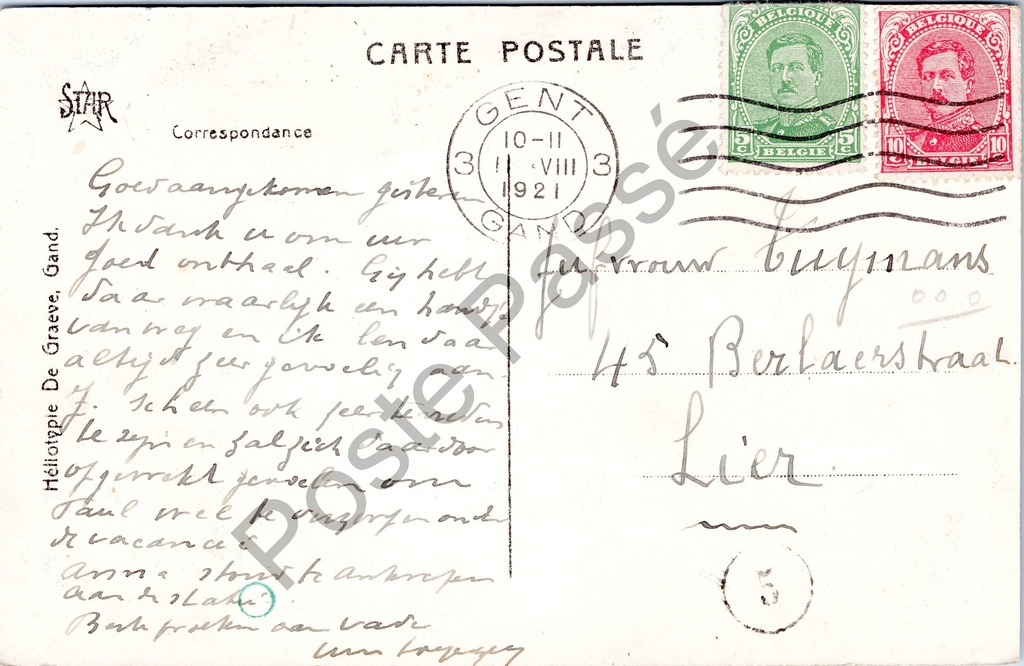 CARTE POSTALE
STAR
Correspondance
Goed aangekomen gisteren
Ik dank u om uw
goed onthaal. Gij hebt
daar waarlijk een handje
van weg en ik ben daar
altijd zeer gevoelig aan
J. scheen ook zeer tevreden
te zijn en zal zich daardoor
opgewekt gevoelen om
Paul wel te onder
de vacancie
Anna stond te antwerpen
aan de statie
Beste groeten aan vader
Héliotypie De Graeve, Gand.
GENT
3 10-11 3
VIII
1921
GAND
BELGIQUE
5c 5c
BELGIË
BELGIQUE
10 10
BELGIË
Jufvrouw Tuymans
45 Berlaerstraat.
Lier
5
Poste Passé